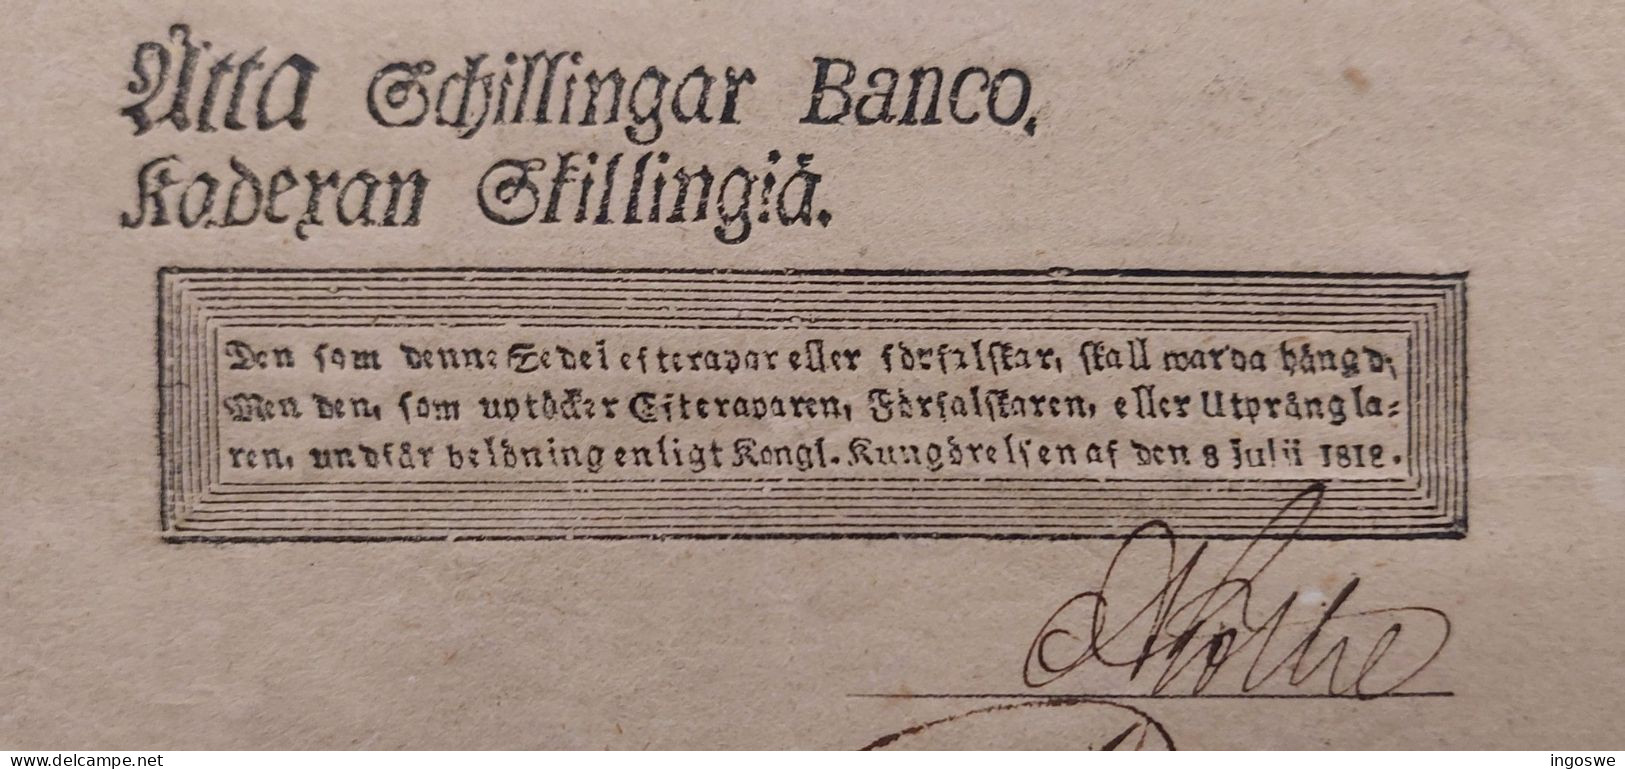 Åtta Schillingar Banco.
Kaderan Skillingiä.
Den som denne Sedel efterapar eller förfalskar, skall warda hängd;
Men den, som uptäcker Efteraparen, Förfalskaren, eller Utprångla=
ren, undfår belöning enligt Kongl. Kungörelsen af den 8 Julii 1812.
www.delcampe.net
ingoswe